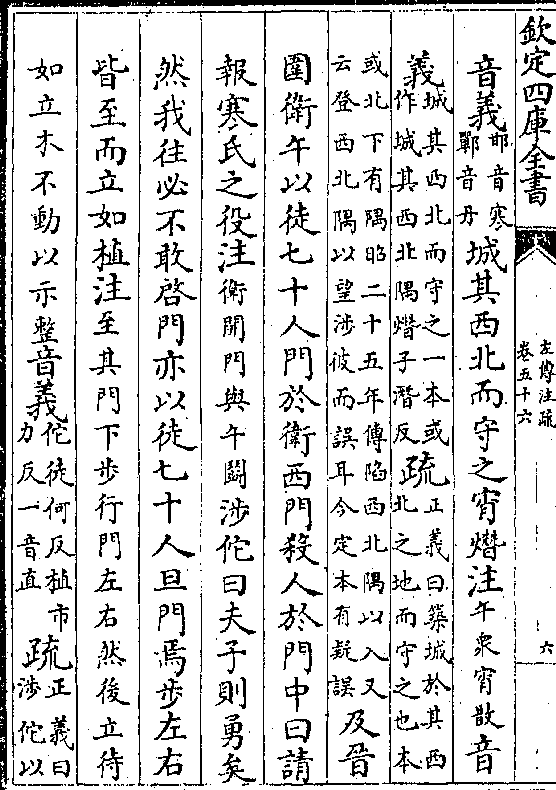 欽定四庫全書
左傳注疏
卷五十六
六
音義邯音寒鄲音丹城其西北而守之宵熸注午衆宵散音
義城其西北而守之一本或作城其西北隅熸子潛反疏正義曰築城於其西北之地而守之也本
或北下有隅昭二十五年傳陷西北隅以入又云登西北隅以望涉彼而誤耳今定本有疑誤及晉
圍衛午以徒七十人門於衛西門殺人於門中曰請
報寒氏之役注衛開門與午鬪涉佗曰夫子則勇矣
然我往必不敢啓門亦以徒七十人旦門焉步左右
皆至而立如植注至其門下步行門左右然後立待
如立木不動以示整音義佗徒何反植市力反一音直疏正義曰涉佗以